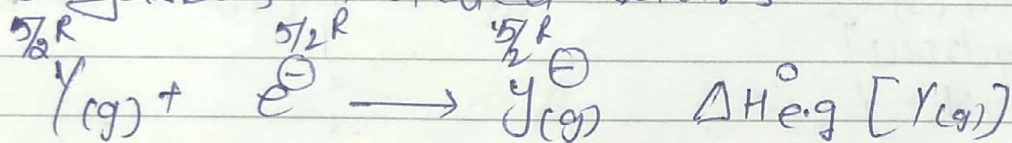 5/2 R 5/2 R 5/2 R
Y(g) + e⊖ ⟶ Y⊖(g) ΔH°e.g [Y(g)]